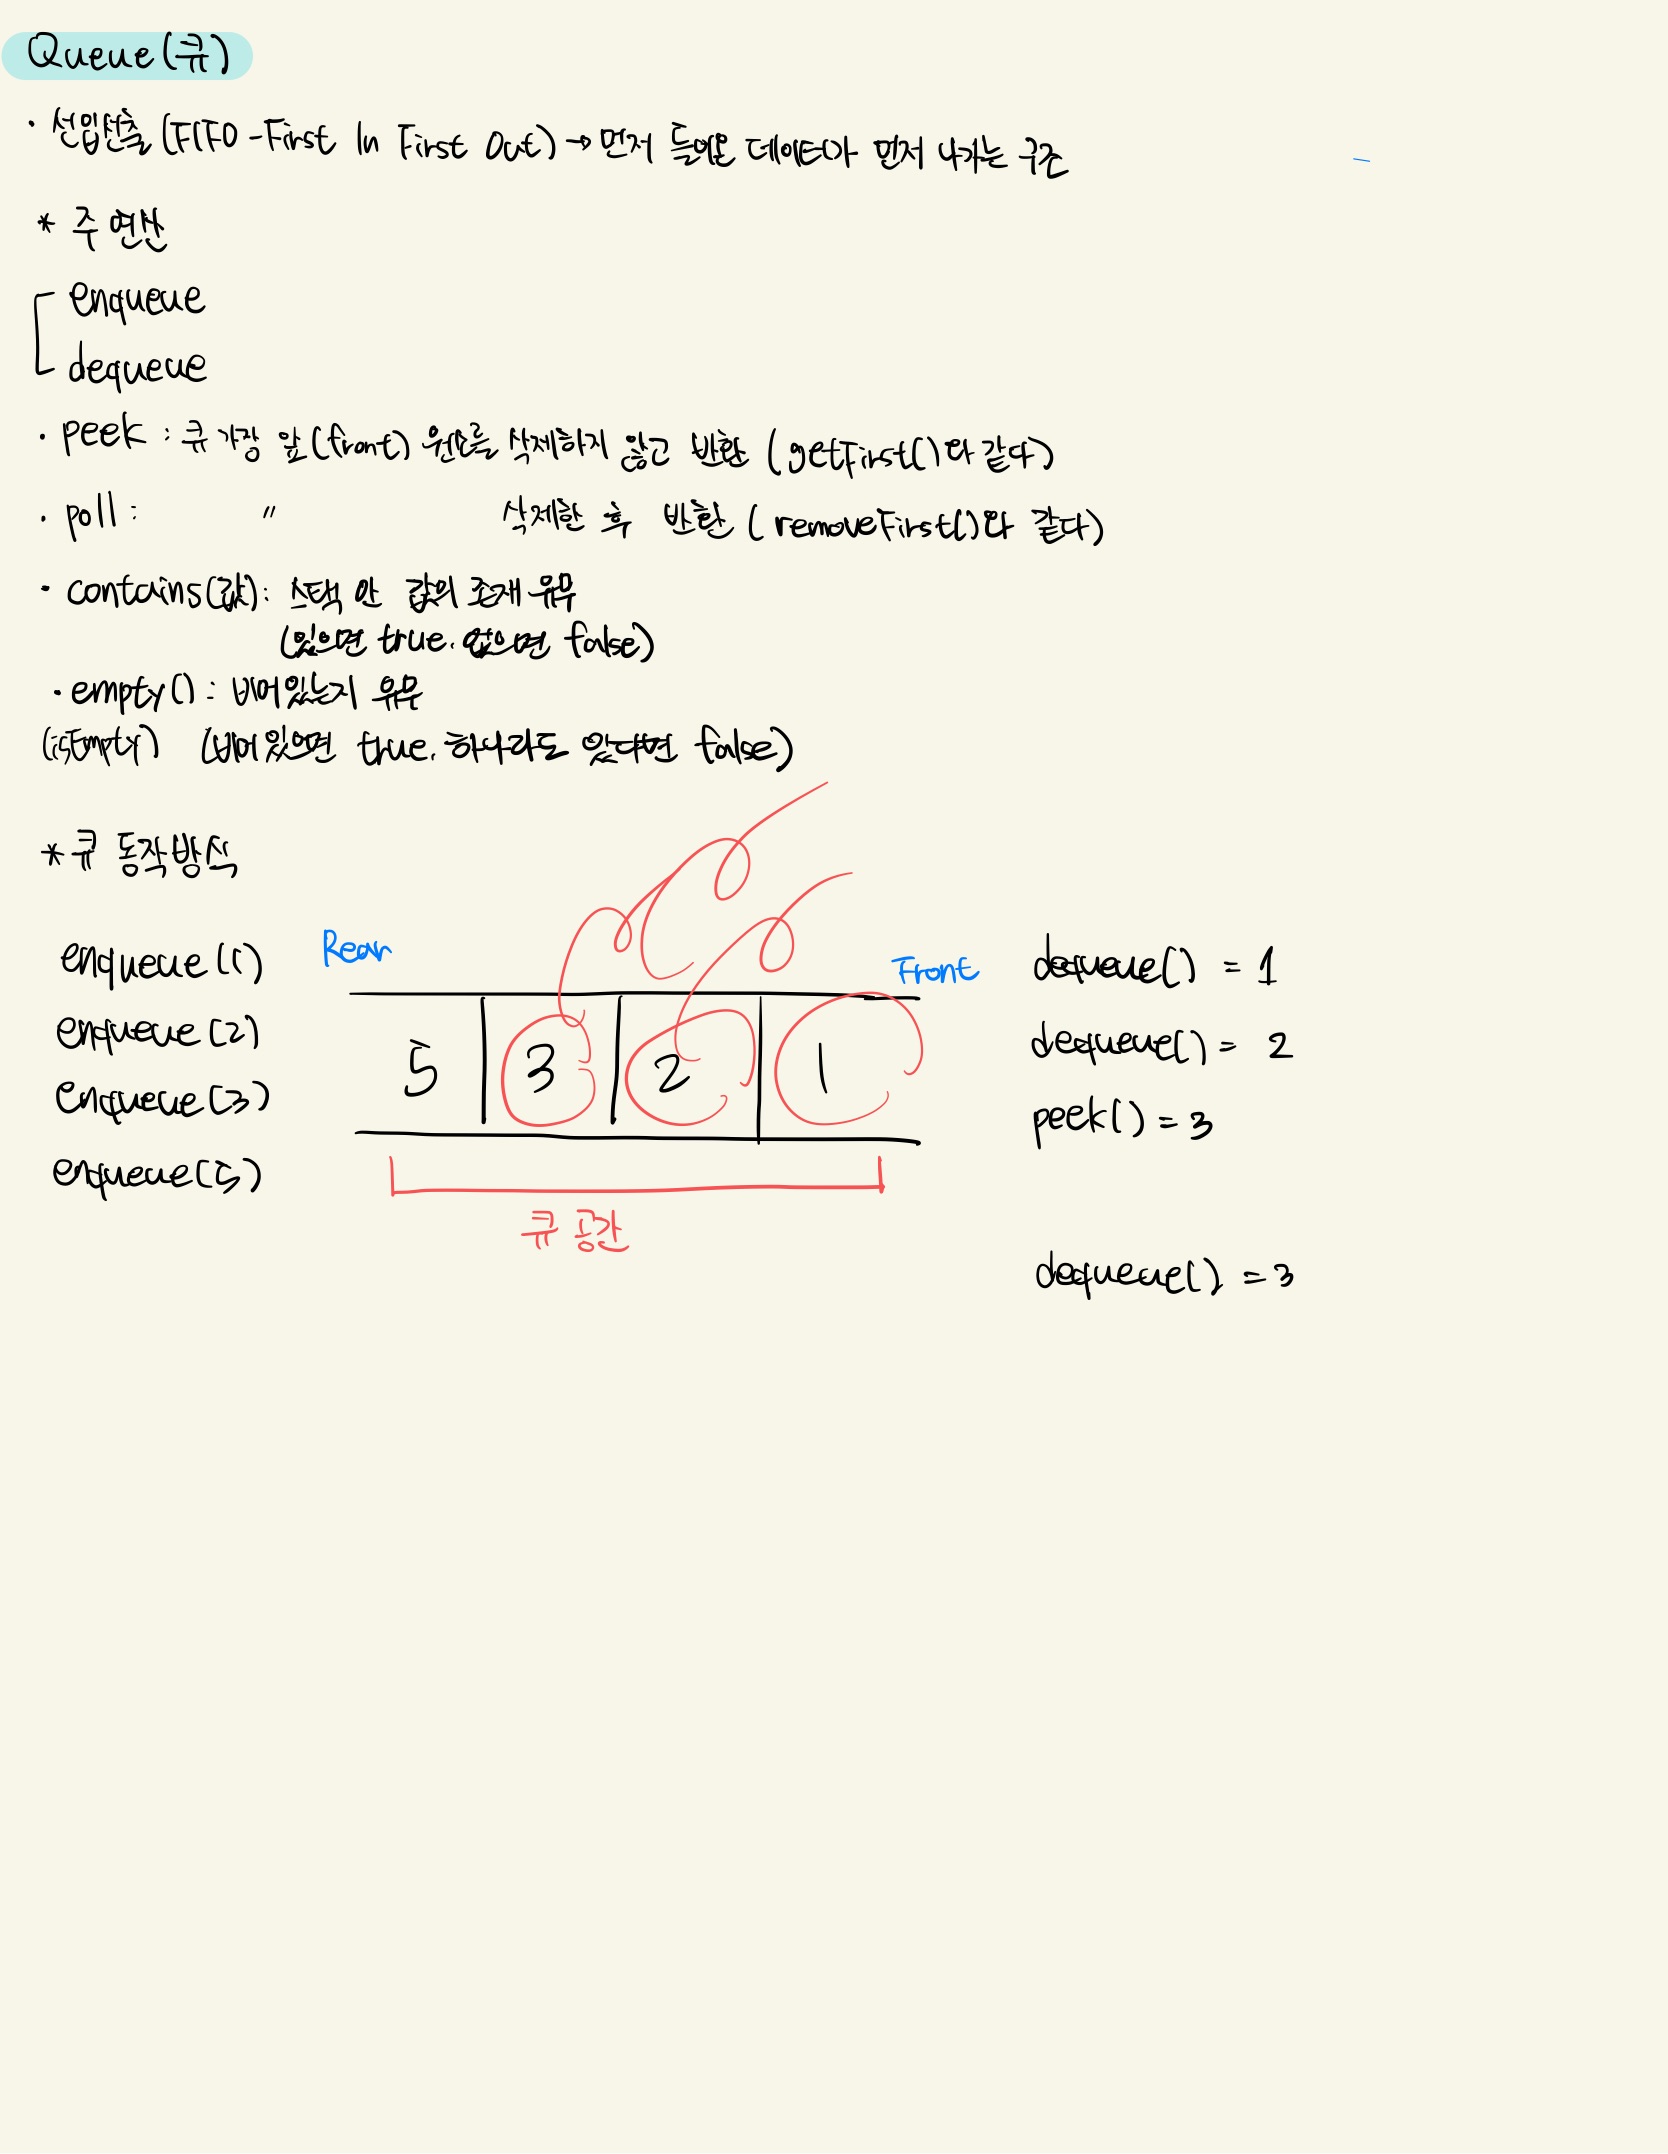 Queue(큐)
· 선입선출 (FIFO - First In First Out) → 먼저 들어온 데이터가 먼저 나가는 구조
* 주 연산
enqueue
dequeue
· peek : 큐 가장 앞(front) 원소를 삭제하지 않고 반환 (getFirst()와 같다)
· poll : 〃 삭제한 후 반환 (removeFirst()와 같다)
· contains(값) : 스택 안 값의 존재 유무
(있으면 true. 없으면 false)
· empty() : 비어있는지 유무
(isEmpty) (비어있으면 true. 하나라도 있다면 false)
* 큐 동작방식
enqueue(1)
enqueue(2)
enqueue(3)
enqueue(5)
Rear
Front
5 3 2 1
큐 공간
dequeue() = 1
dequeue() = 2
peek() = 3
dequeue() = 3